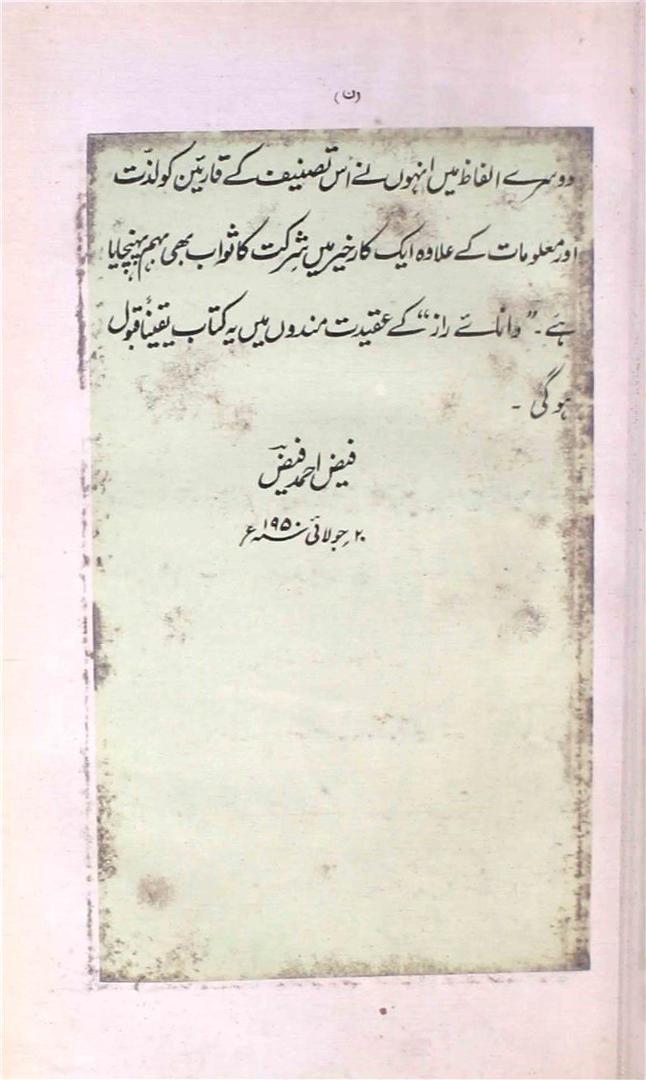 (ن)
دوسرے الفاظ میں انہوں نے اس تصنیف کے قارئین کو لذّت
اور معلومات کے علاوہ ایک کارِ خیر میں شرکت کا ثواب بھی بہم پہنچایا
ہے ۔ "دانائے راز" کے عقیدت مندوں میں یہ کتاب یقیناً قبول
ہوگی ۔
فیض احمد فیضؔ
۲۰ر جولائی سنہ ۱۹۵۰ء